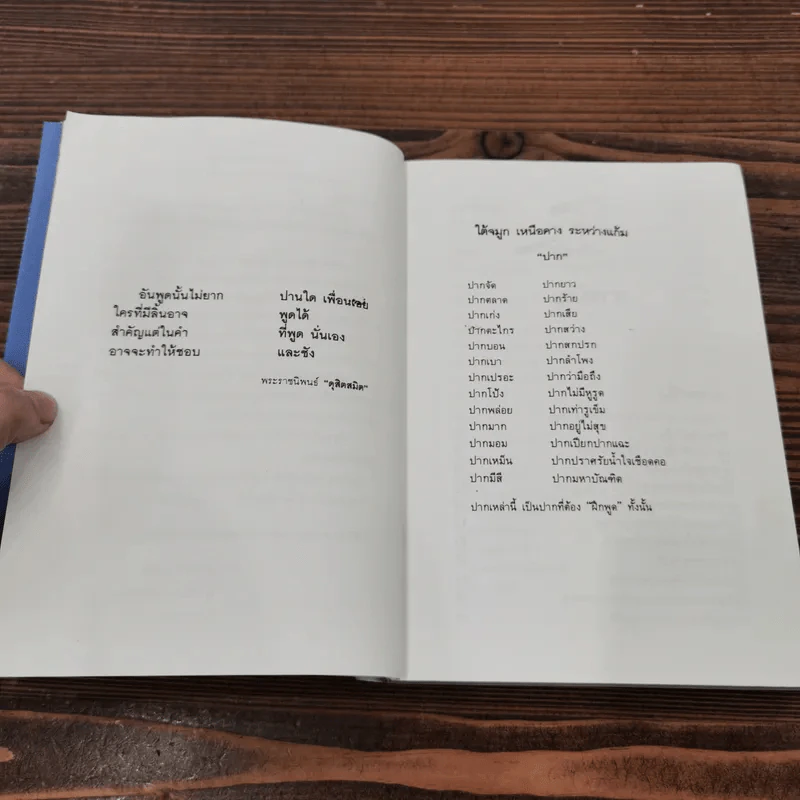 อันพูดนั้นไม่ยาก ปานใด เพื่อนเอย
ใครที่มีลิ้นอาจ พูดได้
สำคัญแต่ในคำ ที่พูด นั่นเอง
อาจจะทำให้ชอบ และชัง
พระราชนิพนธ์ "ดุสิตสมิต"
ใต้จมูก เหนือคาง ระหว่างแก้ม
"ปาก"
ปากจัด ปากยาว
ปากตลาด ปากร้าย
ปากเก่ง ปากเสีย
ปากตะไกร ปากสว่าง
ปากบอน ปากสกปรก
ปากเบา ปากลำโพง
ปากเปราะ ปากว่ามือถึง
ปากโป้ง ปากไม่มีหูรูด
ปากพล่อย ปากเท่ารูเข็ม
ปากมาก ปากอยู่ไม่สุข
ปากมอม ปากเปียกปากแฉะ
ปากเหม็น ปากปราศรัยน้ำใจเชือดคอ
ปากมีสี ปากมหาบัณฑิต
ปากเหล่านี้ เป็นปากที่ต้อง "ฝึกพูด" ทั้งนั้น